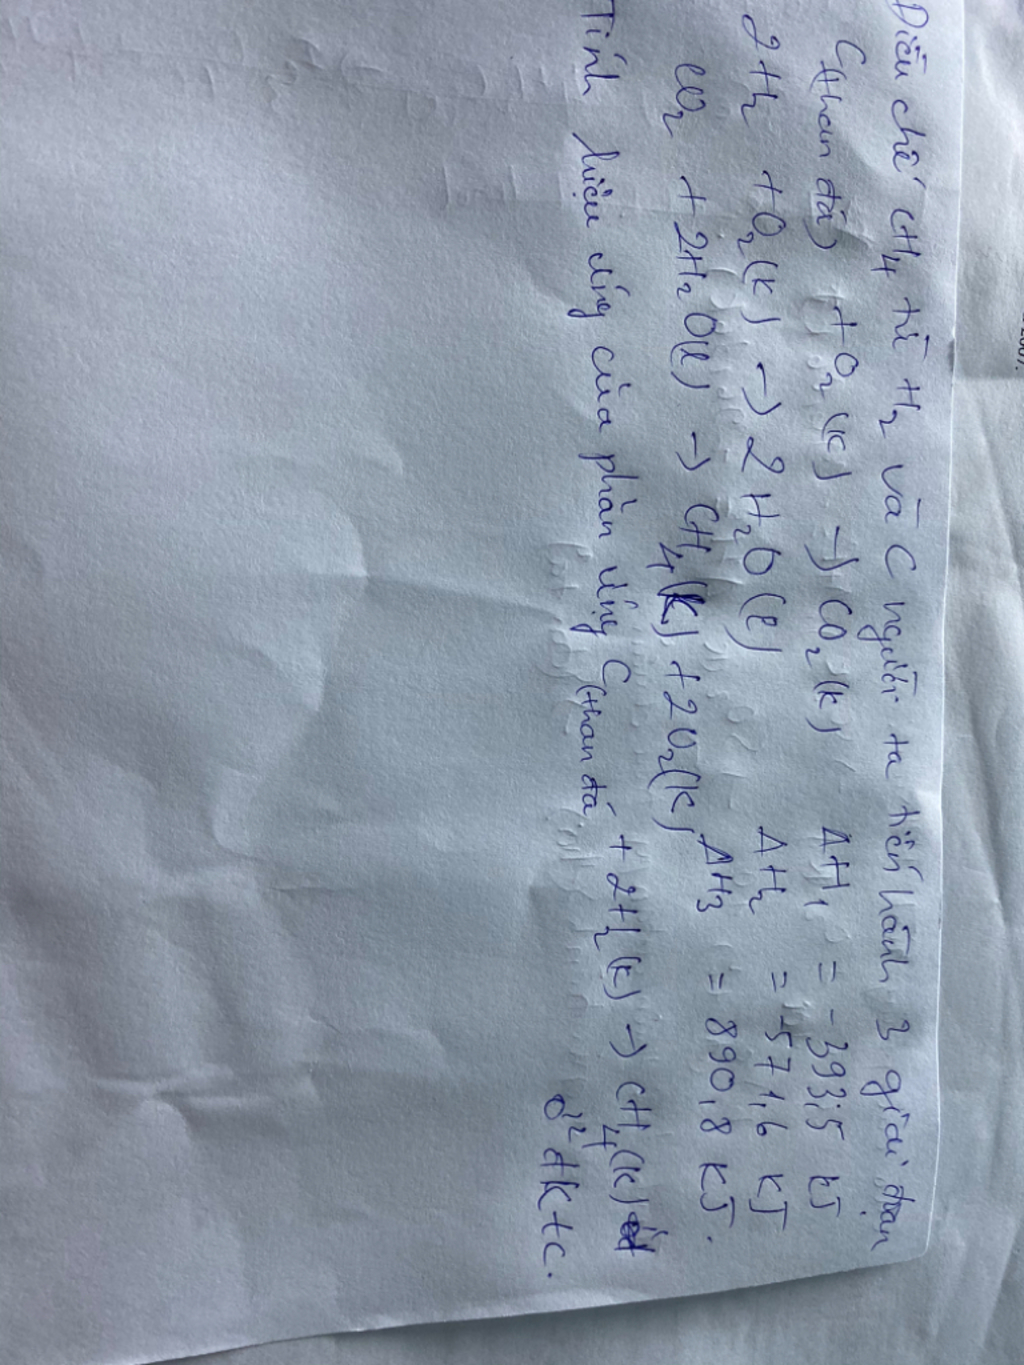 Điều chế CH4 từ H2 và C người ta tiến hành 3 giai đoạn
C(than đá) + O2(k) → CO2(k) ΔH1 = -393,5 kJ
2H2 + O2(k) → 2H2O(l) ΔH2 = -571,6 kJ
CO2 + 2H2O(l) → CH4(k) + 2O2(k) ΔH3 = 890,8 kJ.
Tính hiệu ứng của phản ứng C(than đá) + 2H2(k) → CH4(k)
ở đktc.